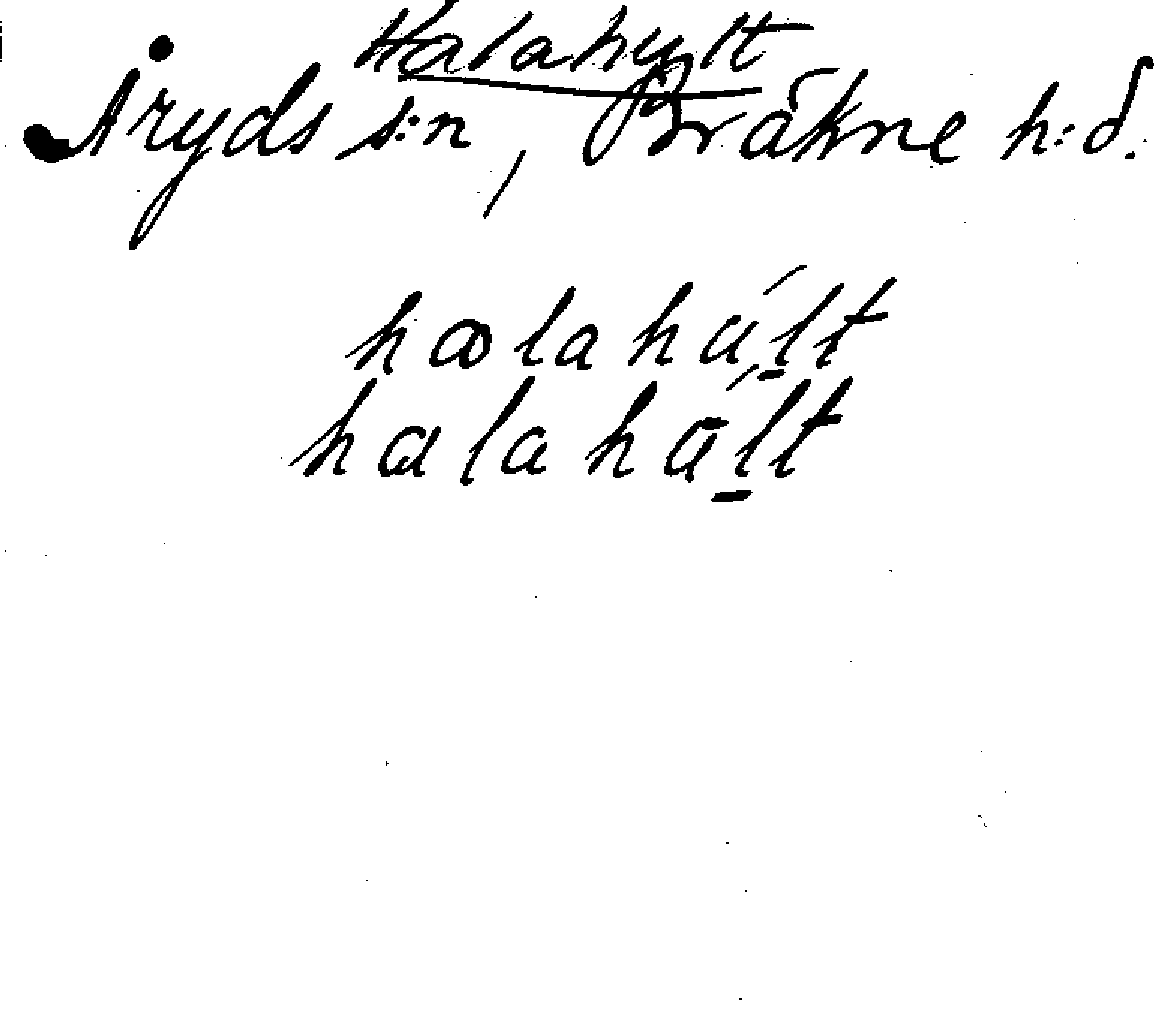 Halahult
Åryds s:n, Bräkne h:d.
halahált
halahált